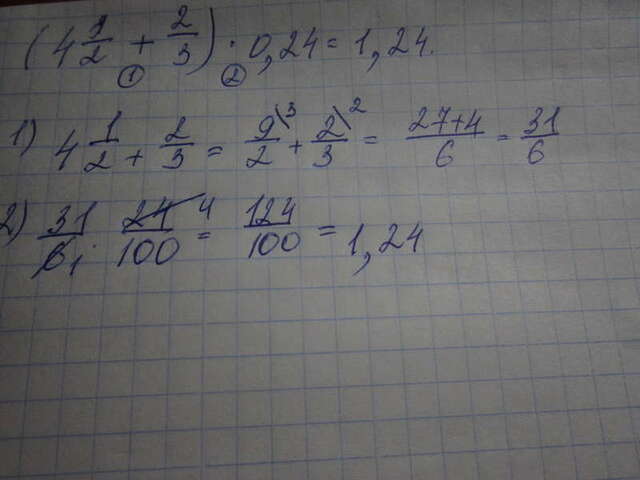 (4 1/2 + 2/3) · 0,24 = 1,24.
① ②
1) 4 1/2 + 2/3 = 9\3/2 + 2\2/3 = 27+4/6 = 31/6
2) 31/6 1 · 24 4/100 = 124/100 = 1,24